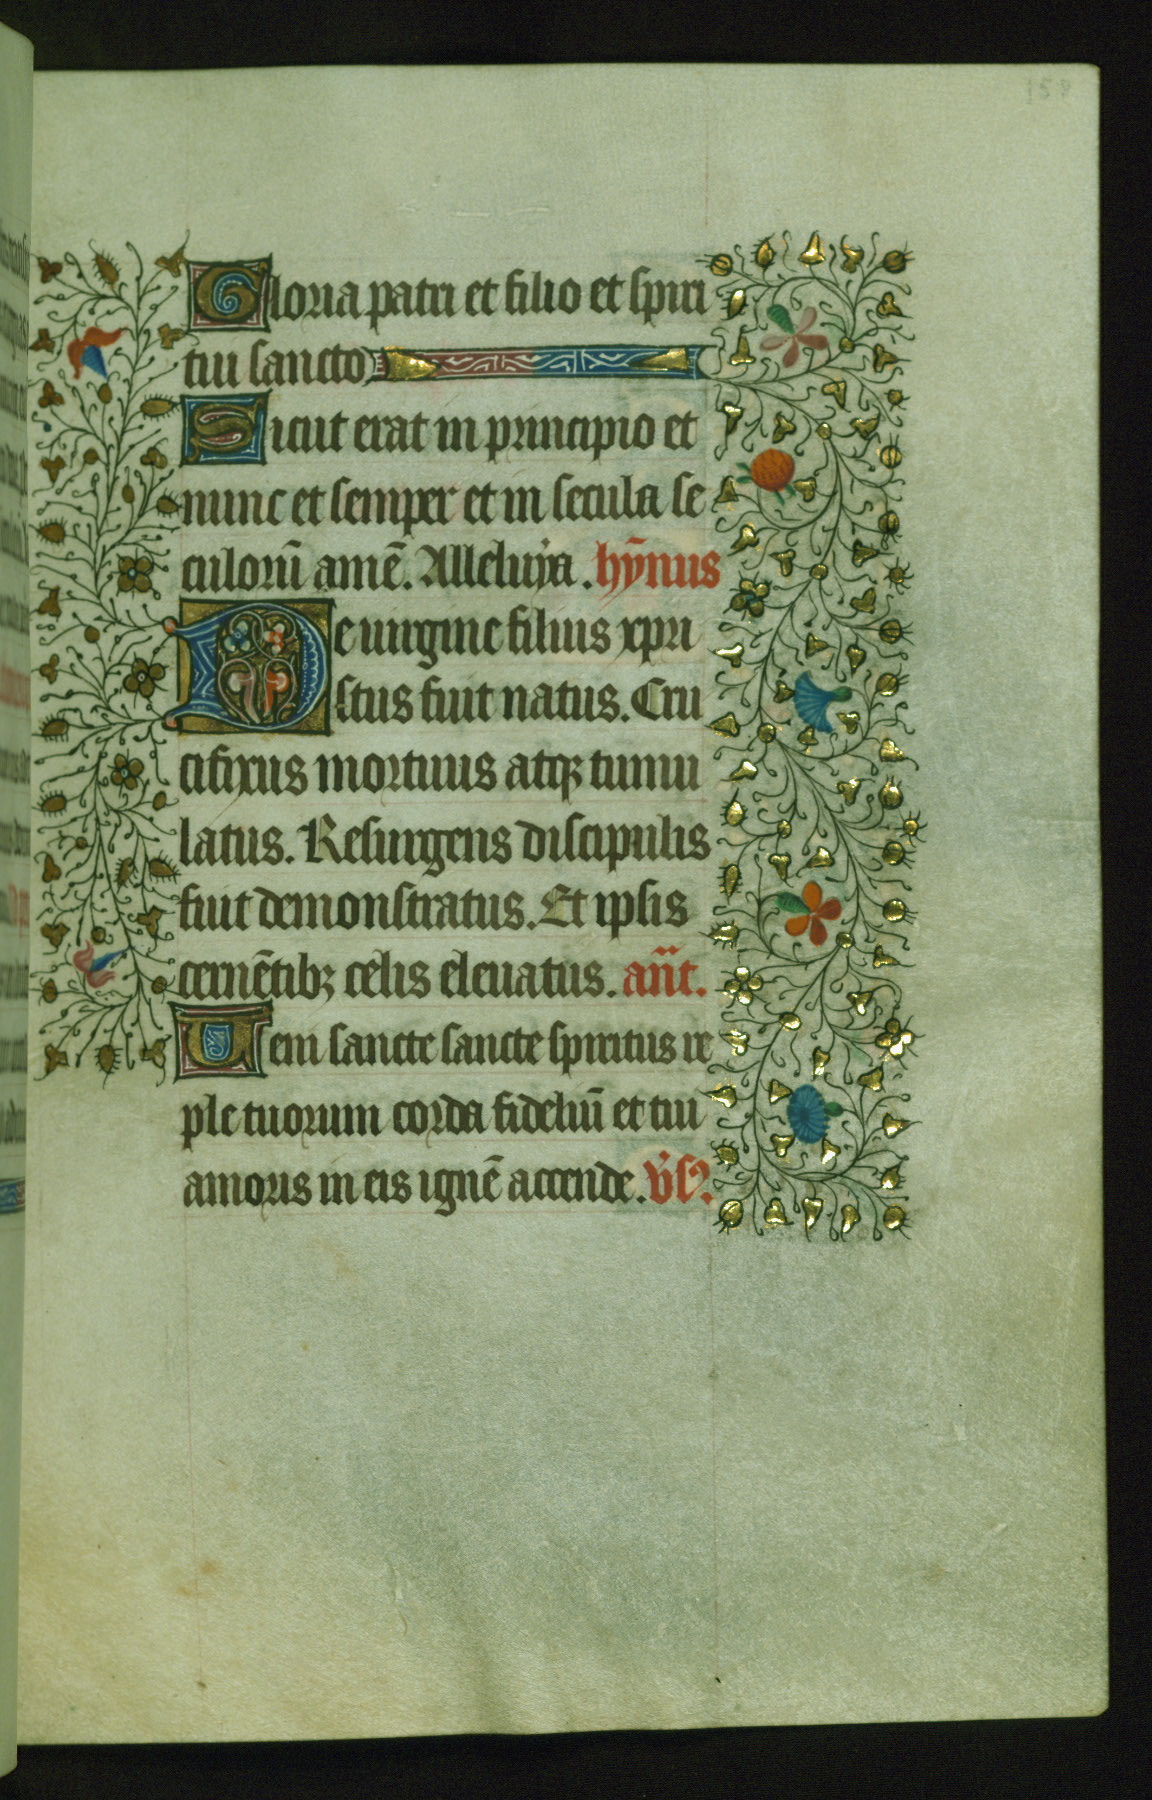 Gloria patri et filio et spiri
tui sancto
Sicut erat in principio et
nunc et semper et in secula se
culorū amē. Alleluya. hỹnus
De uirgine filius xpri
stus fuit natus. Cru
cifixus mortuus atqꝫ tumu
latus. Resurgens discipulis
fuit demonstratus. Et ipsis
cernētibꝫ celis eleuatus. añt.
Ueni sancte sancte spiritus re
ple tuorum corda fideliū et tui
amoris in eis ignē accende.